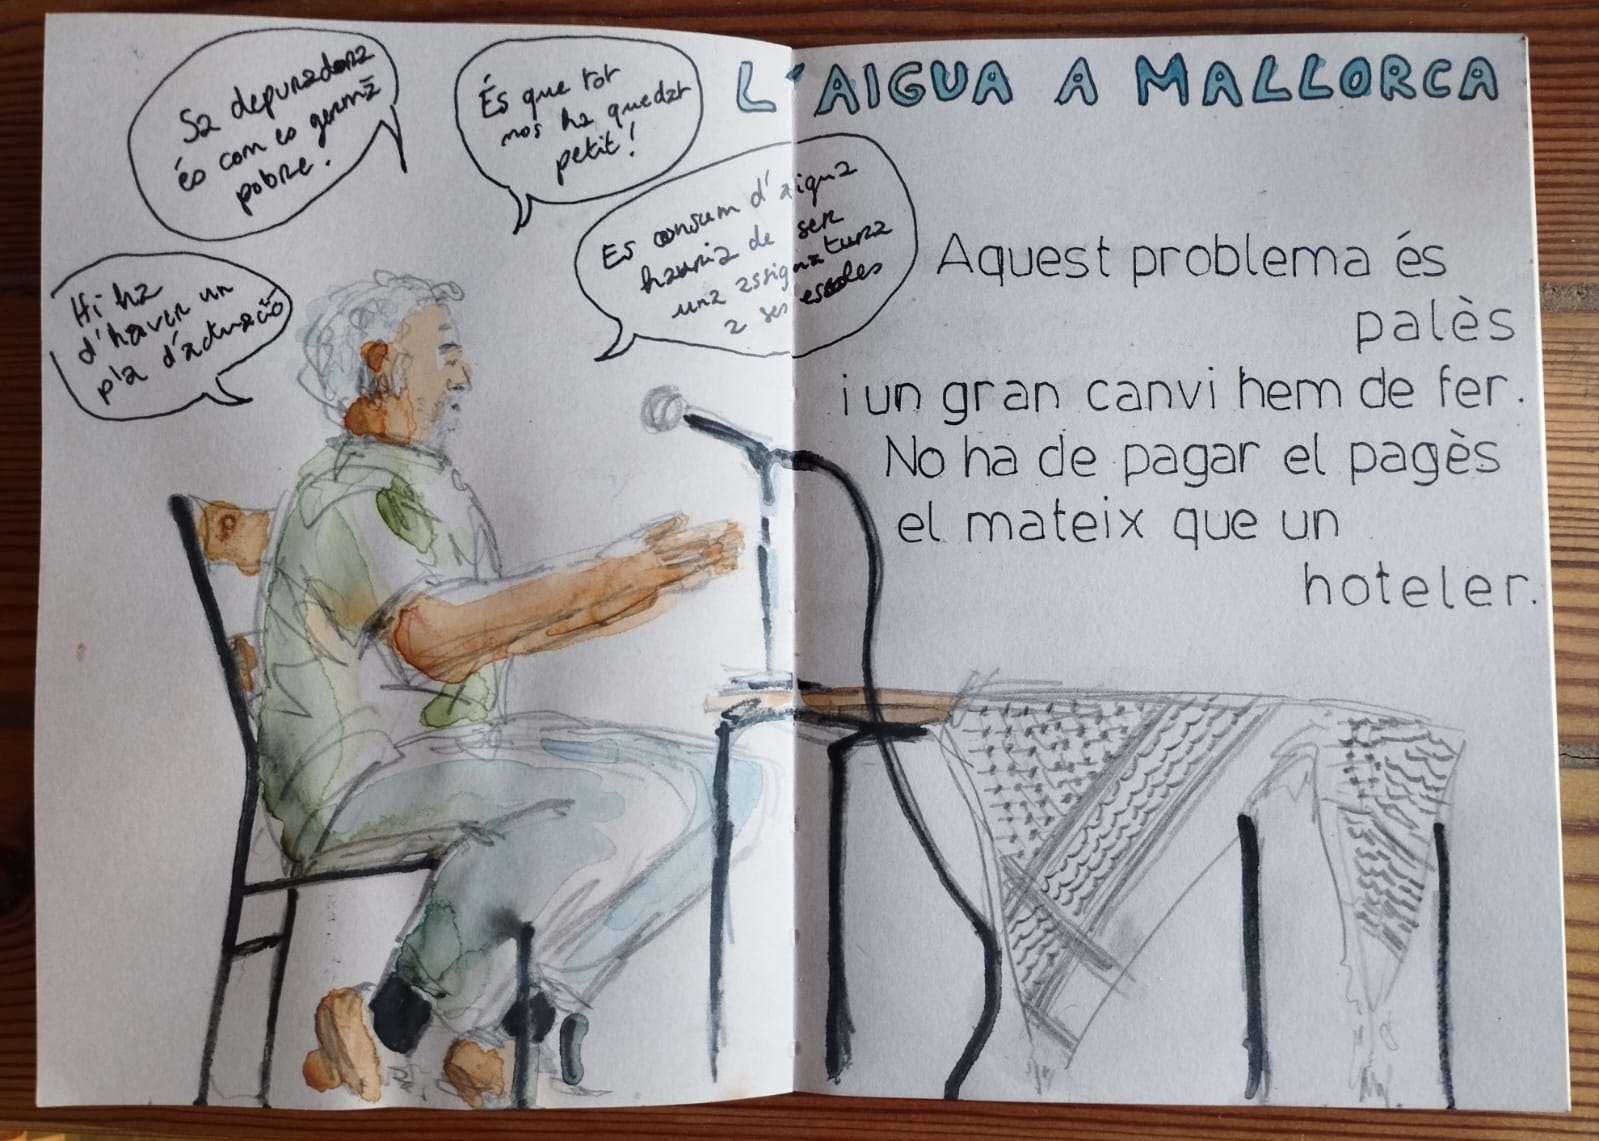 L'AIGUA A MALLORCA
Sa depuradora
és com es germà
pobre.
És que tot
nos ha quedat
petit!
Es consum d'aigua
hauria de ser
una assignatura
a ses escoles
Hi ha
d'haver un
pla d'actuació
Aquest problema és
palès
i un gran canvi hem de fer.
No ha de pagar el pagès
el mateix que un
hoteler.